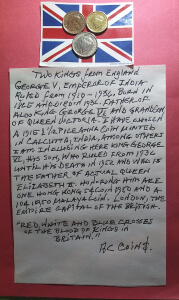 TWO KINGS FROM ENGLAND
GEORGE V, EMPEROR OF INDIA
RULED FROM 1910-1936. BORN IN
1865 AND DIED IN 1936. FATHER OF
ALSO KING GEORGE VI AND GRANDSON
OF QUEEN VICTORIA. I HAVE CHOSEN
A 1915 1/12 PICE ANNA COIN MINTED
IN CALCUTTA, INDIA, AMONG OTHERS
I AM INCLUDING HERE KING GEORGE
VI, HIS SON, WHO RULED FROM 1936
UNTIL HIS DEATH IN 1952 AND WHO IS
THE FATHER OF ACTUAL QUEEN
ELIZABETH II. HONORING HIM ARE
ONE HONG KONG 5¢ COIN 1950 AND A
10¢ 1950 MALAYA COIN. LONDON, THE
EMPIRE CAPITAL OF THE BRITISH.
"RED, WHITE AND BLUE CROSSES
OF THE BLOOD OF KINGS IN
BRITAIN."
COIN$.